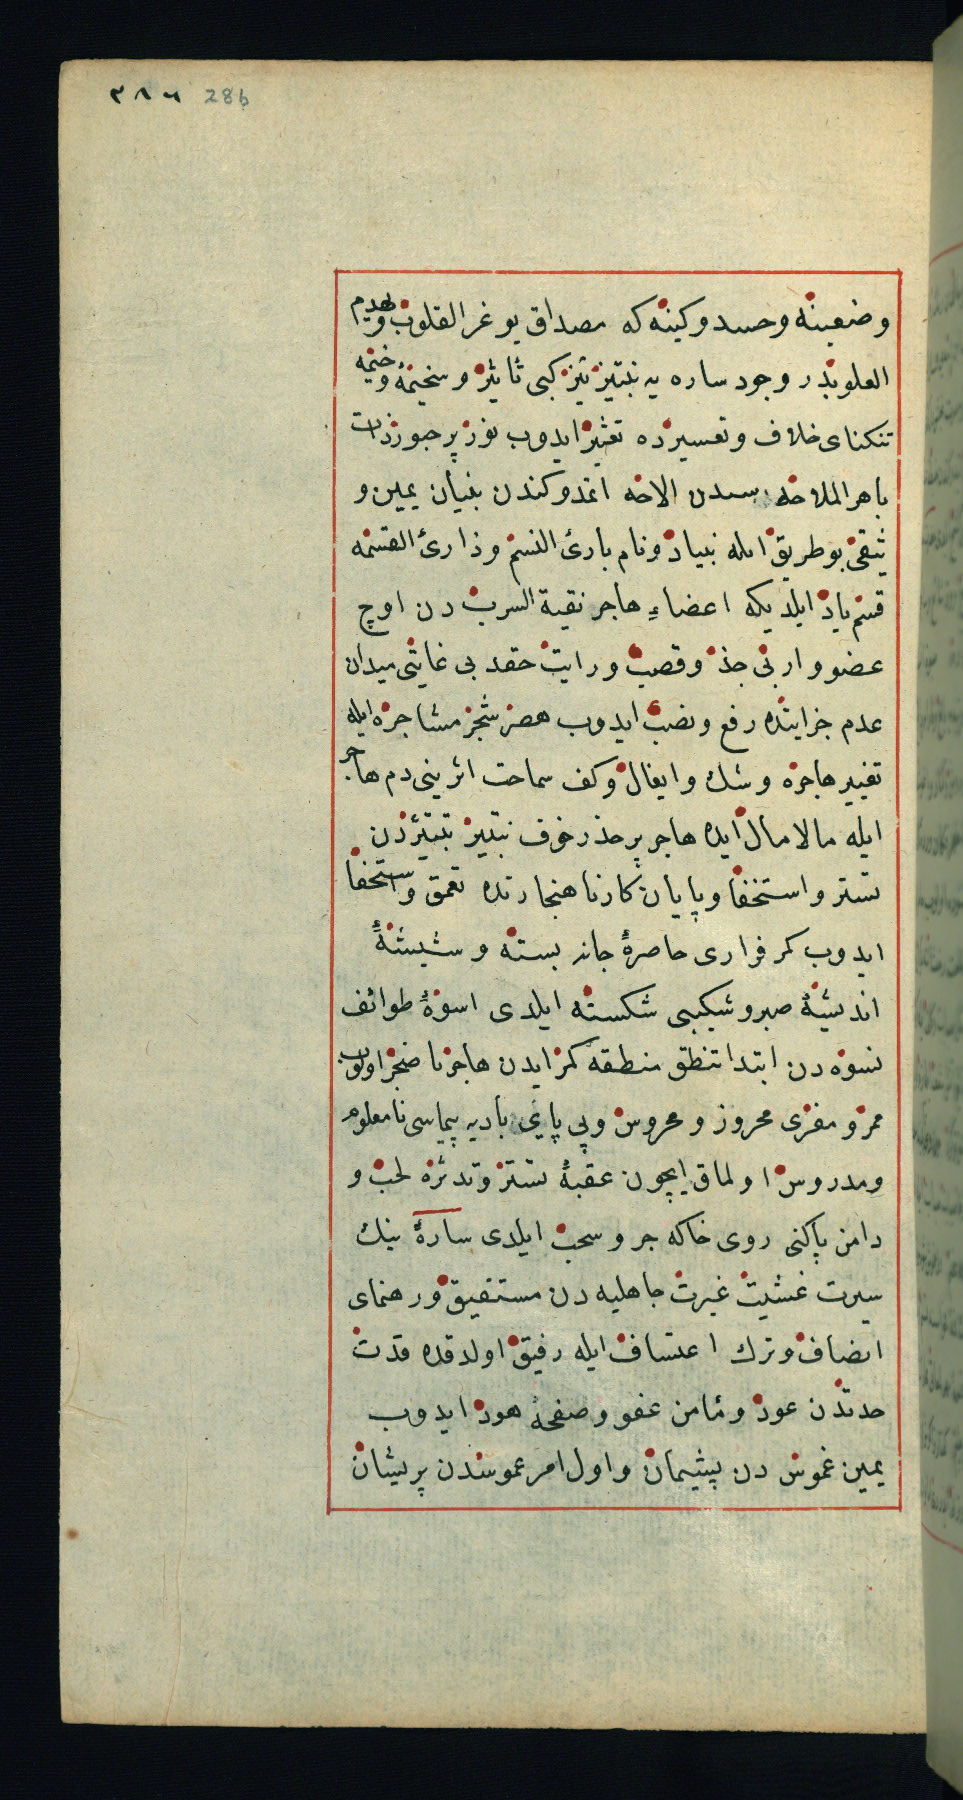 ٢٨٦ 286
وضغینه وحسد وکینه که مصداق یوغر القلوب ویهدم
العلوبدر وجود ساره یه نبتیز تیز کبی ثائیز وسخیمهٔ وخیمه
تنکنای خلاف وتعسیرده تعثیر ایدوب نوز پر جوزذات
باهر الملاخه الاخه اتمدوکندن بنیان یمین و
ثیقی بو طریق ایله بنیاد ونام بارئ النسم وذارئ القسمه
قسم یاد ایلدیکه اعضاءِ هاجر نقیة السرب دن اوچ
عضو وار بی جذ وقصب ورایت حقد بی غایتی میدان
عدم خزایتده رفع ونصب ایدوب هصر شجر مشاجره ایله
تغییر هاجره وسک وایغال وکف سماحت اثرینی دم هاجر
ایله مالامال ایده هاجر پر حذر خوف نبتیز تبتیزدن
تستر واستخفا وپایان کار ناهنجارنده تعمق واستخفا
ایدوب کمر فراری حاصرهٔ جانه بسته وشیشهٔ
اندیشهٔ صبر وشکیبی شکسته ایلدی اسوهٔ طوائف
نسوه دن ابتدا تنطق منطقه کمر ایدن هاجر نا ضجر اولوب
ممر ومفری محروز ومحروس وپی پای بادیه پیماسی نامعلوم
ومدروس اولماق ایچون عقبهٔ تستر وتدثره لحب و
دامن پاکنی روی خاکه جر وسحب ایلدی سارهٔ نیک
سیرت غشیت غیرت جاهلیه دن مستفیق ورهنمای
انصاف وترک اعتساف ایله رفیق اولدقده قدت
حدتدن عود ومامن عفو وصفحهٔ هود ایدوب
یمین غموس دن پشیمان واول امر عموسندن پریشان